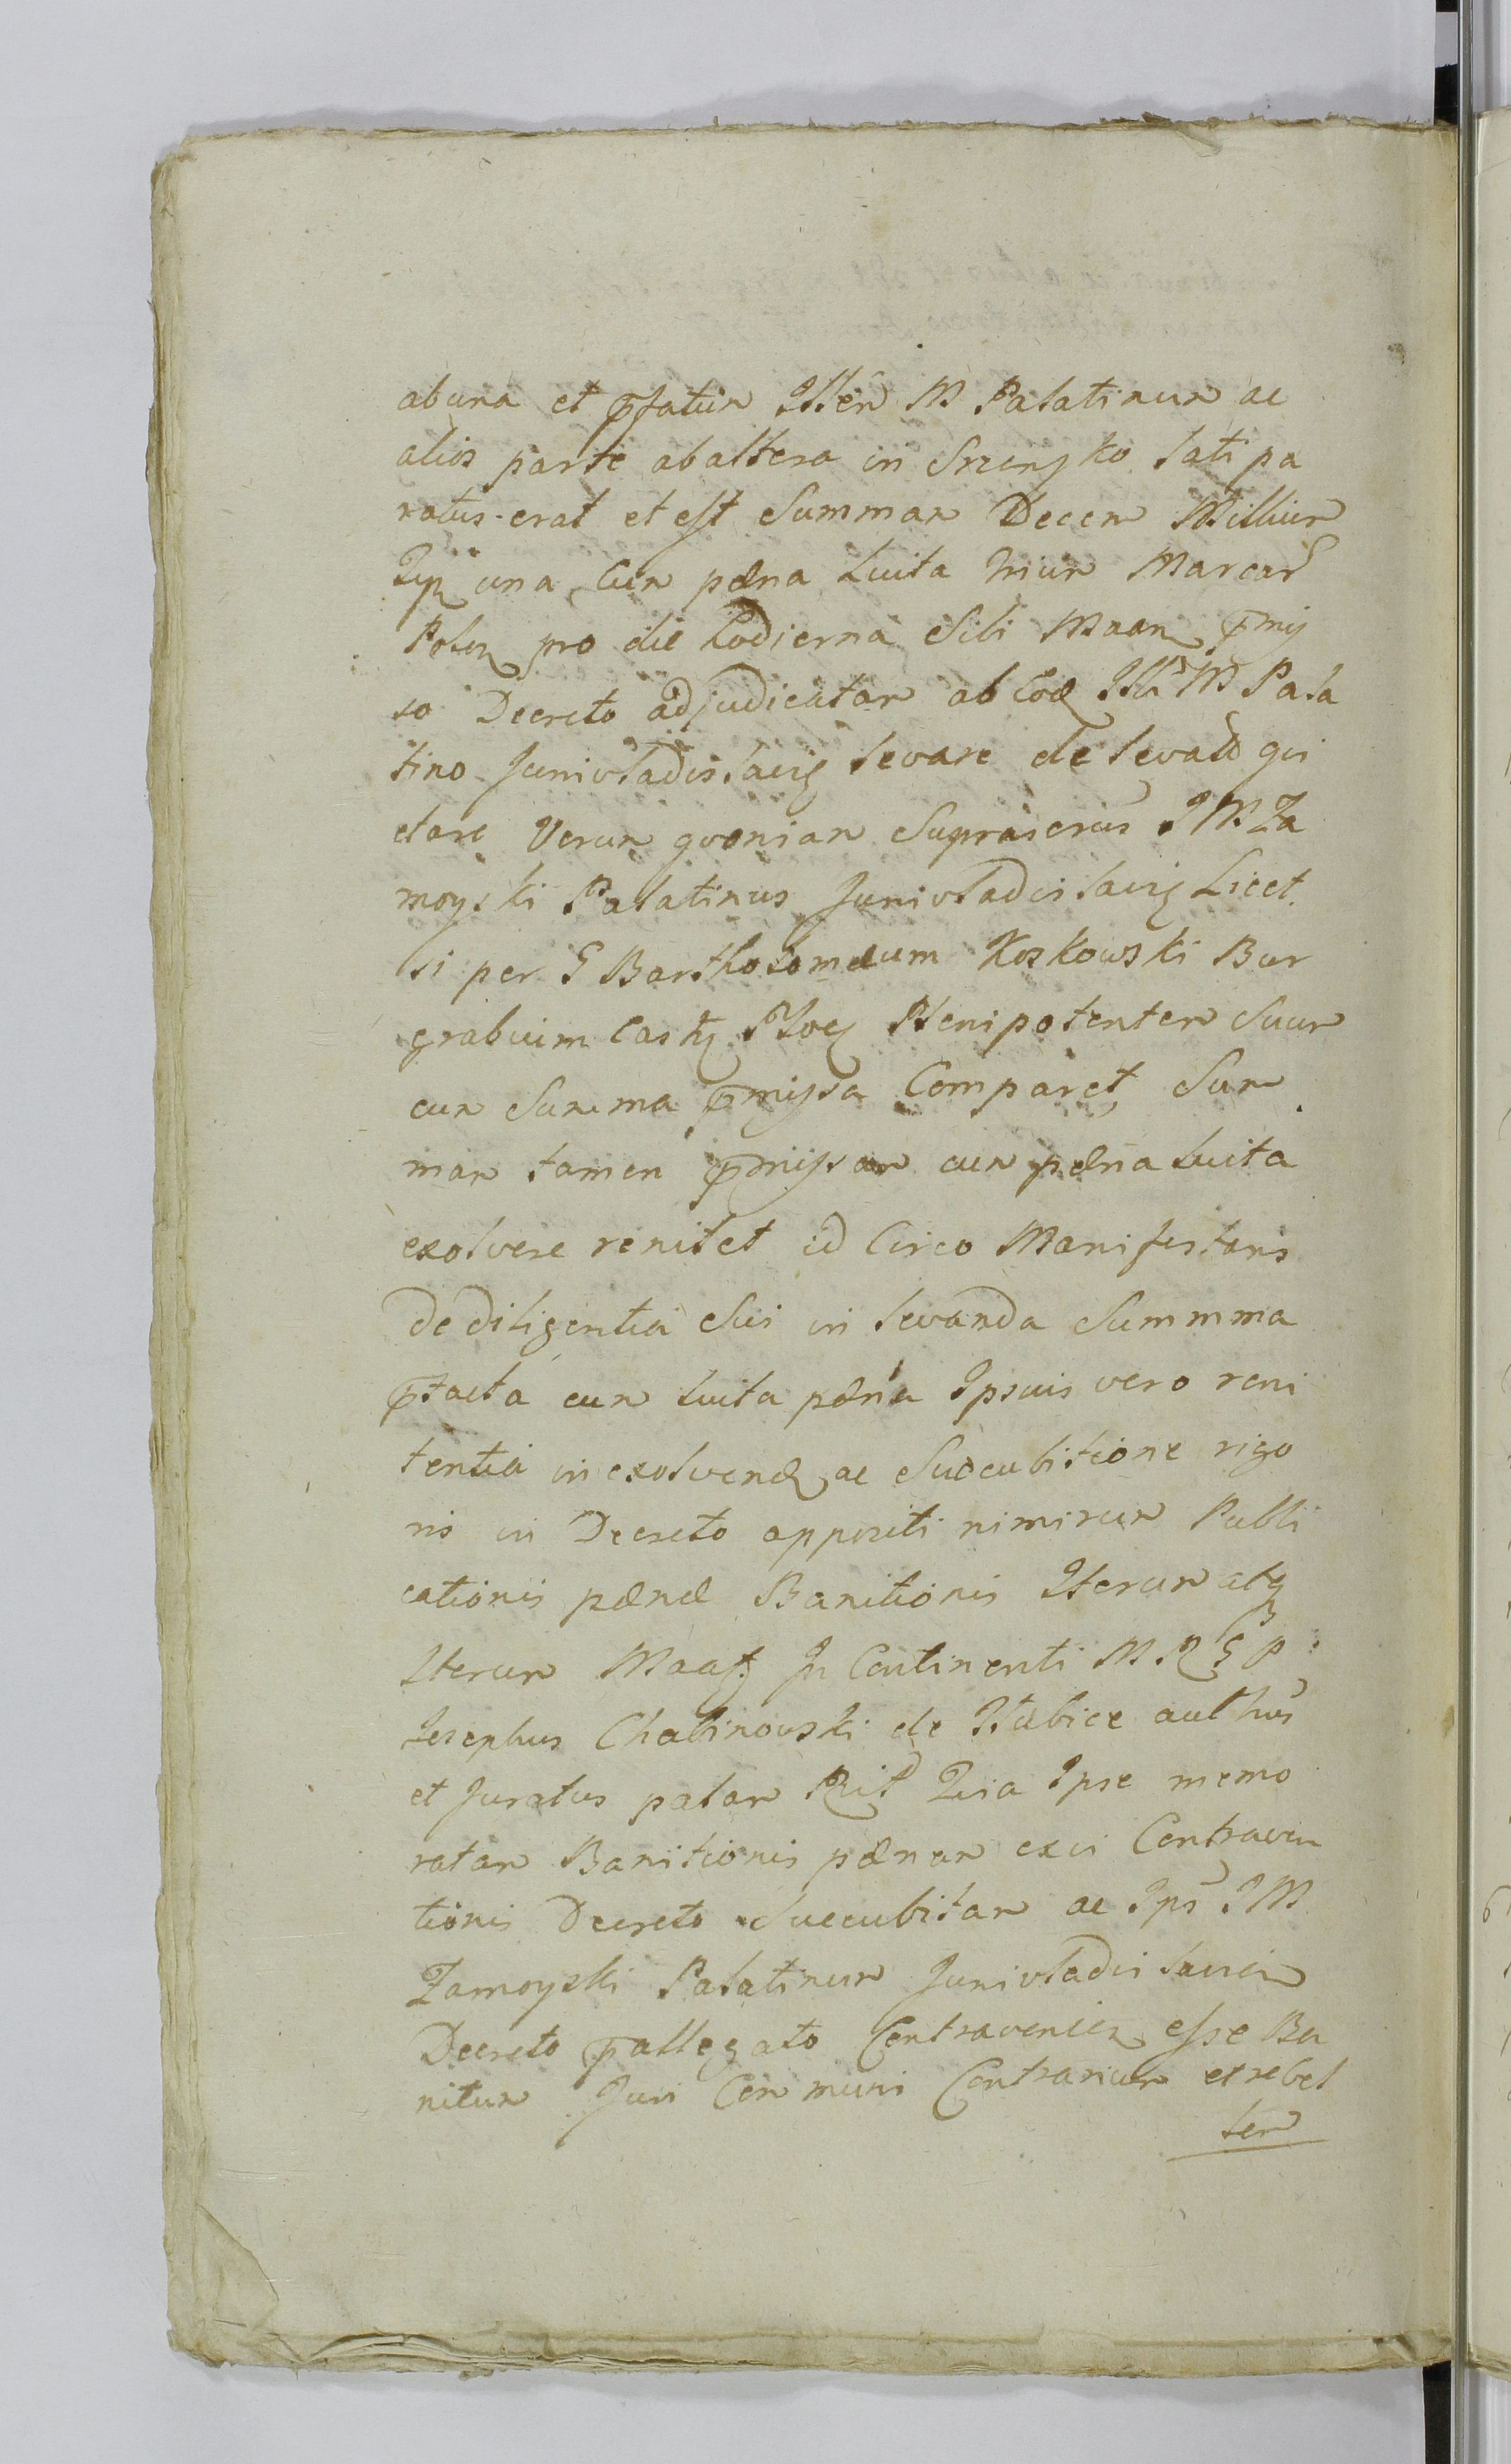 ab una et p̄fatum Illrem M Palatinum ac
alios parte ab altera in Srzensko lati pa
ratus erat et est Summam Decem Millium
una cum pæna luita trium Marcar
Polon pro die hodierna sibi Maan p̄mis
so Decreto adjudicatam ab eod Illri M Pala
tino Junivladislavien levare de levatis qui
etare Verum quoniam Suprascrus I M Za
moyski Palatinus Junivladislavien Licet
si per G Bartholomæum Koskowski Bur
grabium Castn Ploc Plenipotentem Suum
cum Summa p̄missa Comparet, Sum
mam tamen p̄missam cum pæna luita
exolvere renitet id Circo Manifestans
de diligentia Sui in levanda Summma
p̄tacta cum luita pæna Ipsius vero reni
tentia in exolvend ac Succubitione rigo
ris in Decreto appositi nimirum Publi
cationis pænæ Banitionis Iterum atq
Iterum Maast In Continenti M R G P
Josephus Chabinowski de Slubice auth
et Juratus palam Rit Quia Ipse memo
ratam Banitionis pænam ex vi Contraven
tionis Decreto Succubitam ac Ips I M
Zamoyski Palatinum Junivladislavien
Decreto p̄allegato Contravenien esse Ba
nitum Juri Communi Contrarium et rebel
lem